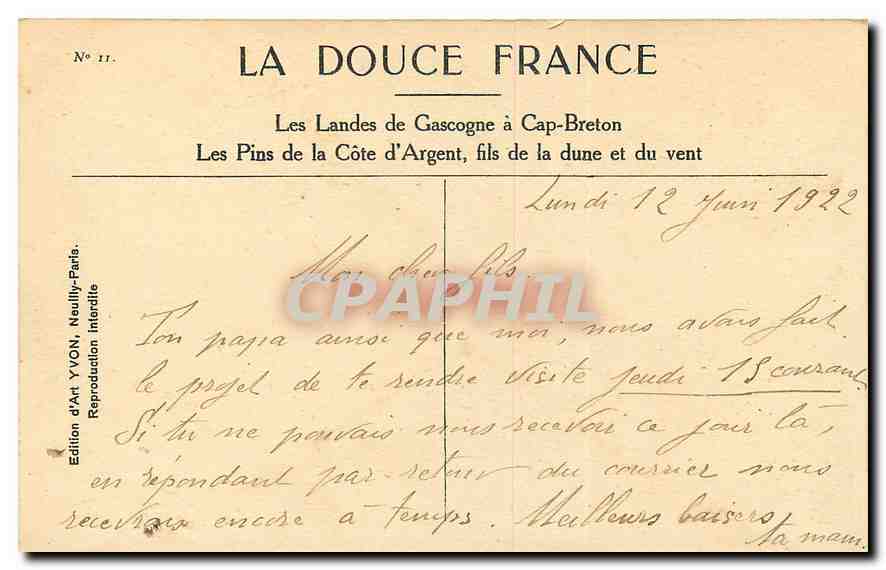 Nº 11.
LA DOUCE FRANCE
Les Landes de Gascogne à Cap-Breton
Les Pins de la Côte d'Argent, fils de la dune et du vent
Edition d'Art YVON, Neuilly-Paris.
Reproduction interdite
Lundi 12 Juin 1922
Mon cher fils.
CPAPHIL
Ton papa ainsi que moi, nous avons fait
le projet de te rendre visite jeudi 15 courant.
Si tu ne pouvais nous recevoir ce jour là,
en répondant par retour du courrier nous
recevrons encore à temps. Meilleurs baisers
ta mam.